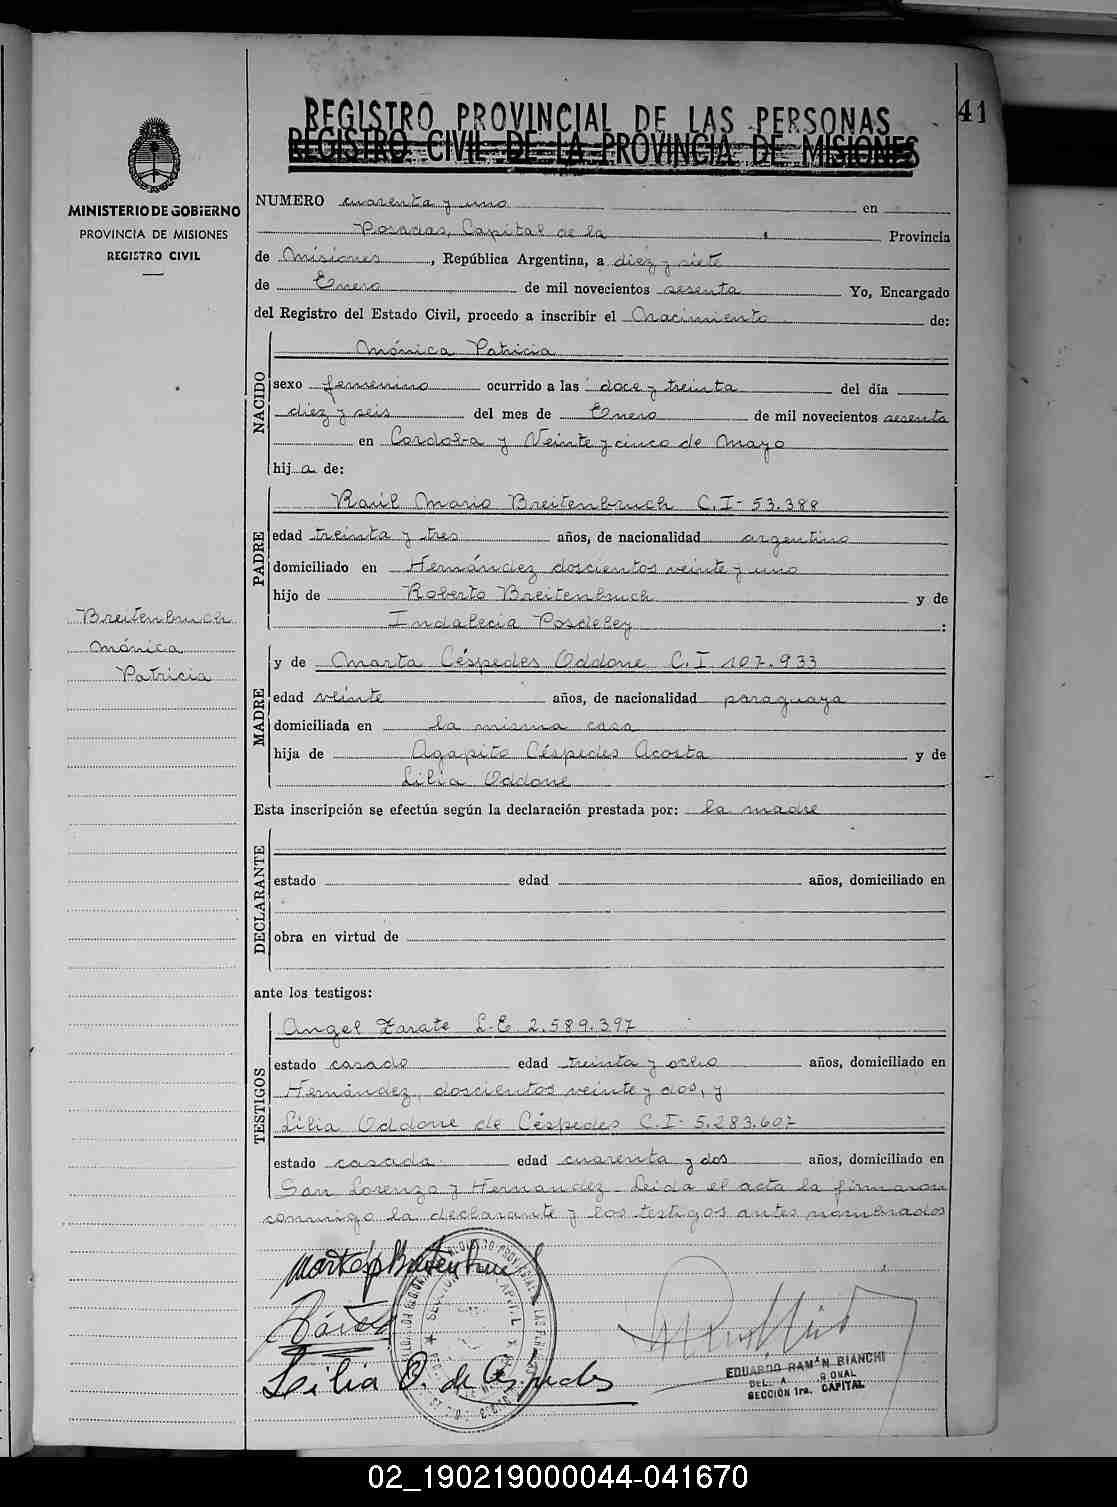 REGISTRO PROVINCIAL DE LAS PERSONAS
REGISTRO CIVIL DE LA PROVINCIA DE MISIONES
41
MINISTERIO DE GOBIERNO
PROVINCIA DE MISIONES
REGISTRO CIVIL
NUMERO cuarenta y uno en
Posadas, Capital de la Provincia
de Misiones, República Argentina, a diez y siete
de Enero de mil novecientos sesenta Yo, Encargado
del Registro del Estado Civil, procedo a inscribir el Nacimiento de:
NACIDO
Mónica Patricia
sexo femenino ocurrido a las doce y treinta del día
diez y seis del mes de Enero de mil novecientos sesenta
en Cordoba y Veinte y cinco de Mayo
hij a de:
PADRE
Raúl Mario Breitenbruch C.I- 53.388
edad treinta y tres años, de nacionalidad argentino
domiciliado en Hernández doscientos veinte y uno
hijo de Roberto Breitenbruch y de
Indalecia Posdeley :
Breitenbruch
Mónica
Patricia
MADRE
y de Marta Céspedes Oddone C.I 107.933
edad veinte años, de nacionalidad paraguaya
domiciliada en la misma casa
hija de Agapito Céspedes Acosta y de
Lilia Oddone
Esta inscripción se efectúa según la declaración prestada por: la madre
DECLARANTE
estado edad años, domiciliado en
obra en virtud de
ante los testigos:
TESTIGOS
Angel Zarate L.E 2.589.397
estado casado edad treinta y ocho años, domiciliado en
Hernández, doscientos veinte y dos, y
Lilia Oddone de Céspedes C.I- 5.283.607
estado casada edad cuarenta y dos años, domiciliado en
San Lorenzo y Hernandez- Leida el acta la firmaron
conmigo la declarante y los testigos antes nombrados
Lilia O. de Céspedes
EDUARDO RAMÓN BIANCHI
SECCIÓN 1ra. CAPITAL
02_190219000044-041670